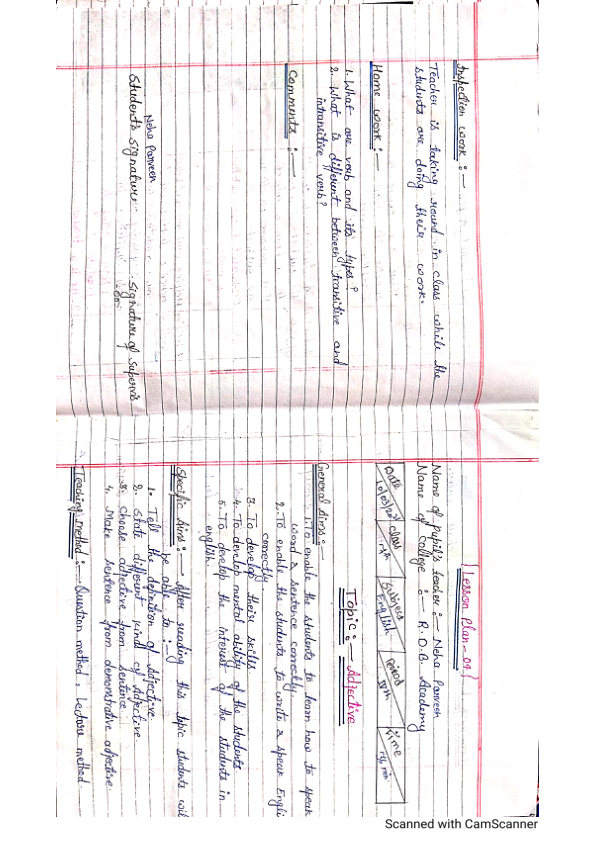 Inspection work :—
Teacher is taking round in class while the
students are doing their work.
Home work :—
1. What are verb and its types?
2. What is different between transitive and
intransitive verb?
Comments :—
Neha Parveen
Student's signature
Signature of Supervis
Lesson Plan - 04
Name of pupil's teacher :— Neha Parveen
Name of college :— R.O.B. Academy
Date
Class
Subject
English
Period
Time
Topic :— Adjective
General Aims :—
1. To enable the students to learn how to speak
word & sentence correctly.
2. To enable the students to write & speak Engli
correctly
3. To develop these skills
4. To develop mental ability of the students
5. To develop the interest of the students in
english.
Specific Aims :— After reading this topic students will
be able to :—
1. Tell the definition of Adjective.
2. State different kind of Adjective.
3. Choose adjective from sentence
4. Make sentence from demonstrative adjective
Teaching method :— Question method, Lecture method
Scanned with CamScanner